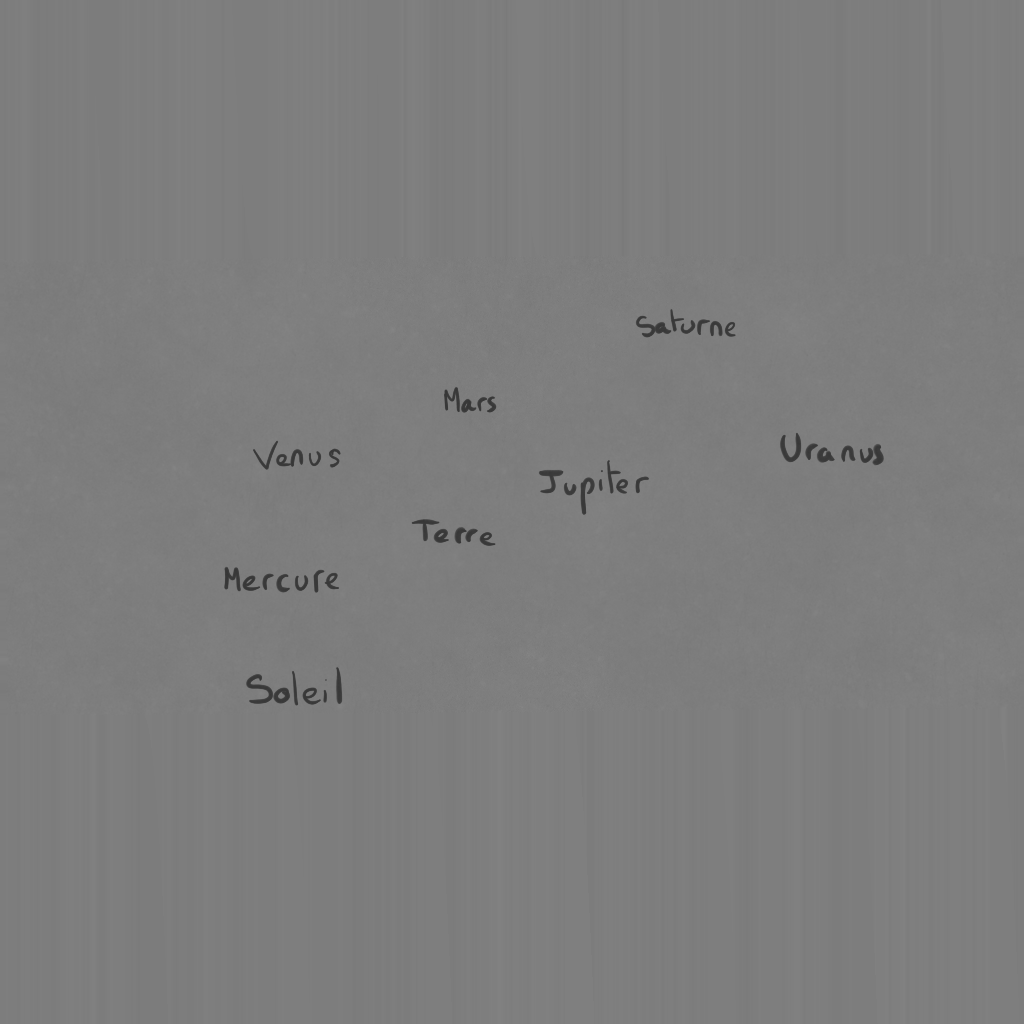 Saturne
Mars
Uranus
Venus
Jupiter
Terre
Mercure
Soleil